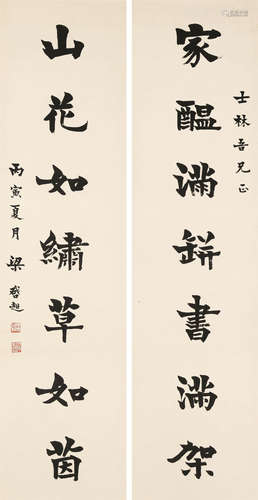 士林吾兄正
家醞滿缾書滿架
山花如繡草如茵
丙寅夏月 梁啓超